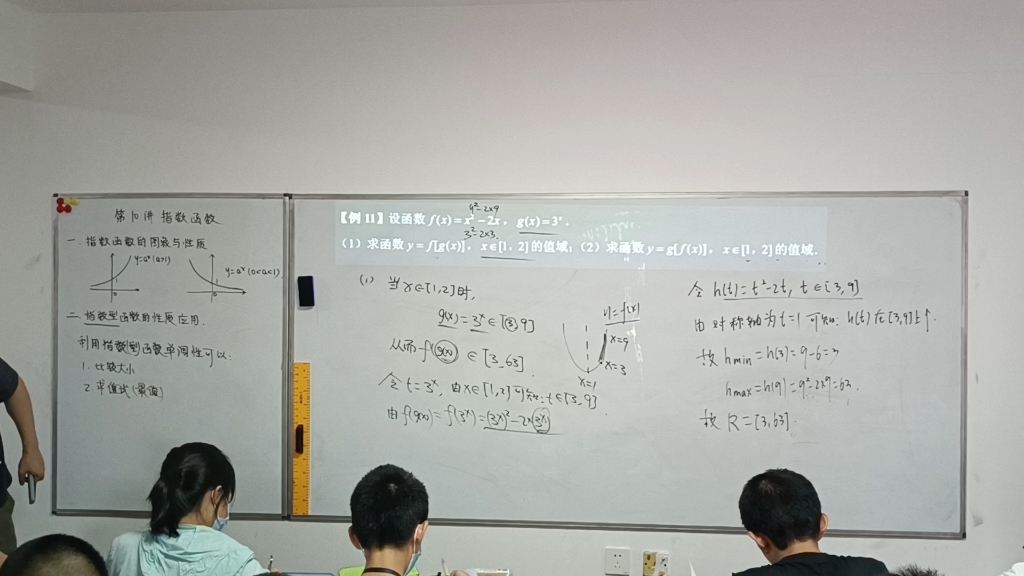 第10讲 指数函数
一. 指数函数的图象与性质
y=aˣ(a>1)
y=aˣ(0<a<1)
1
0
1
0
二. 指数型函数的性质应用.
利用指数型函数单调性可以:
1. 比较大小
2. 求值域(最值)
9²-2×9
【例 11】设函数 f(x)=x²-2x，g(x)=3ˣ.
3²-2×3
（1）求函数 y=f[g(x)]，x∈[1，2]的值域；（2）求函数 y=g[f(x)]，x∈[1，2]的值域.
(1) 当 x∈[1,2]时,
g(x)=3ˣ∈[3,9]
从而 f(g(x)) ∈[3,63].
令 t=3ˣ, 由x∈[1,2]可知: t∈[3,9].
由f(g(x))=f(3ˣ)=(3ˣ)²-2×(3ˣ)
y=f(x)
x=9
x=3
x=1
令 h(t)=t²-2t, t∈[3,9]
由对称轴为t=1 可知: h(t)在[3,9]上↑.
故 hmin=h(3)=9-6=3
hmax=h(9)=9²-2×9=63.
故 R=[3,63].